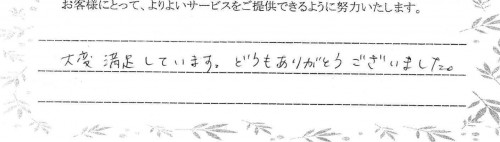 お客様にとって、よりよいサービスをご提供できるように努力いたします。
大変満足しています。どうもありがとうございました。